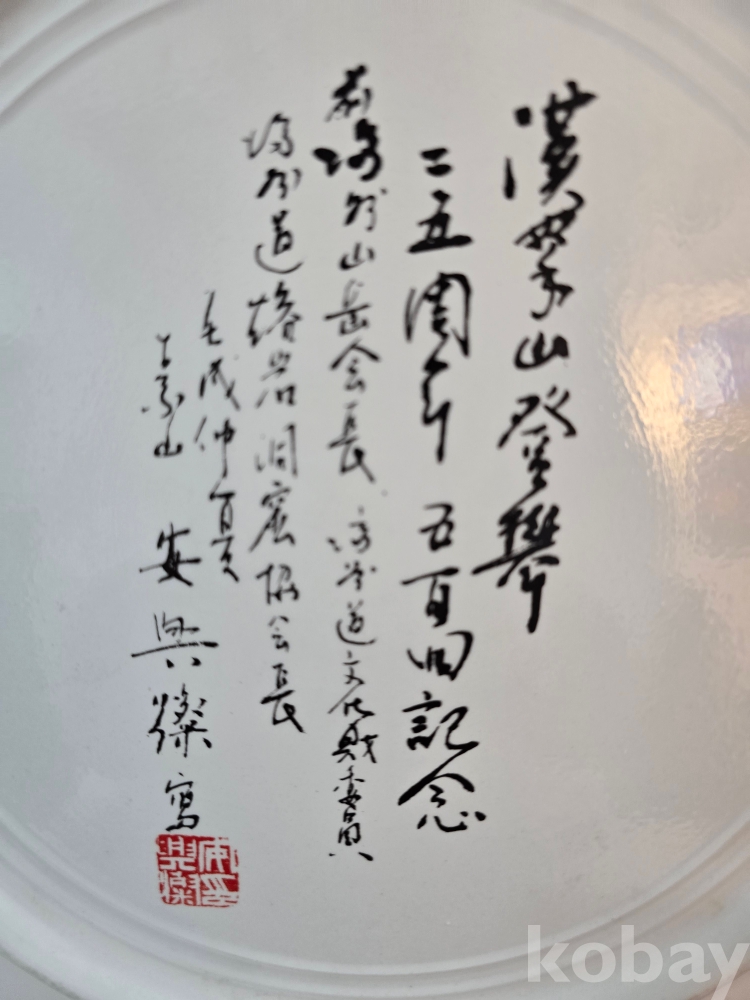 漢拏山登攀
二五周年 五百回記念
前 濟州山岳会長 濟州道文化財委員
濟州道 洞窟協会長
壬戌仲夏
山 安興燦 寫
安興燦印
kobay